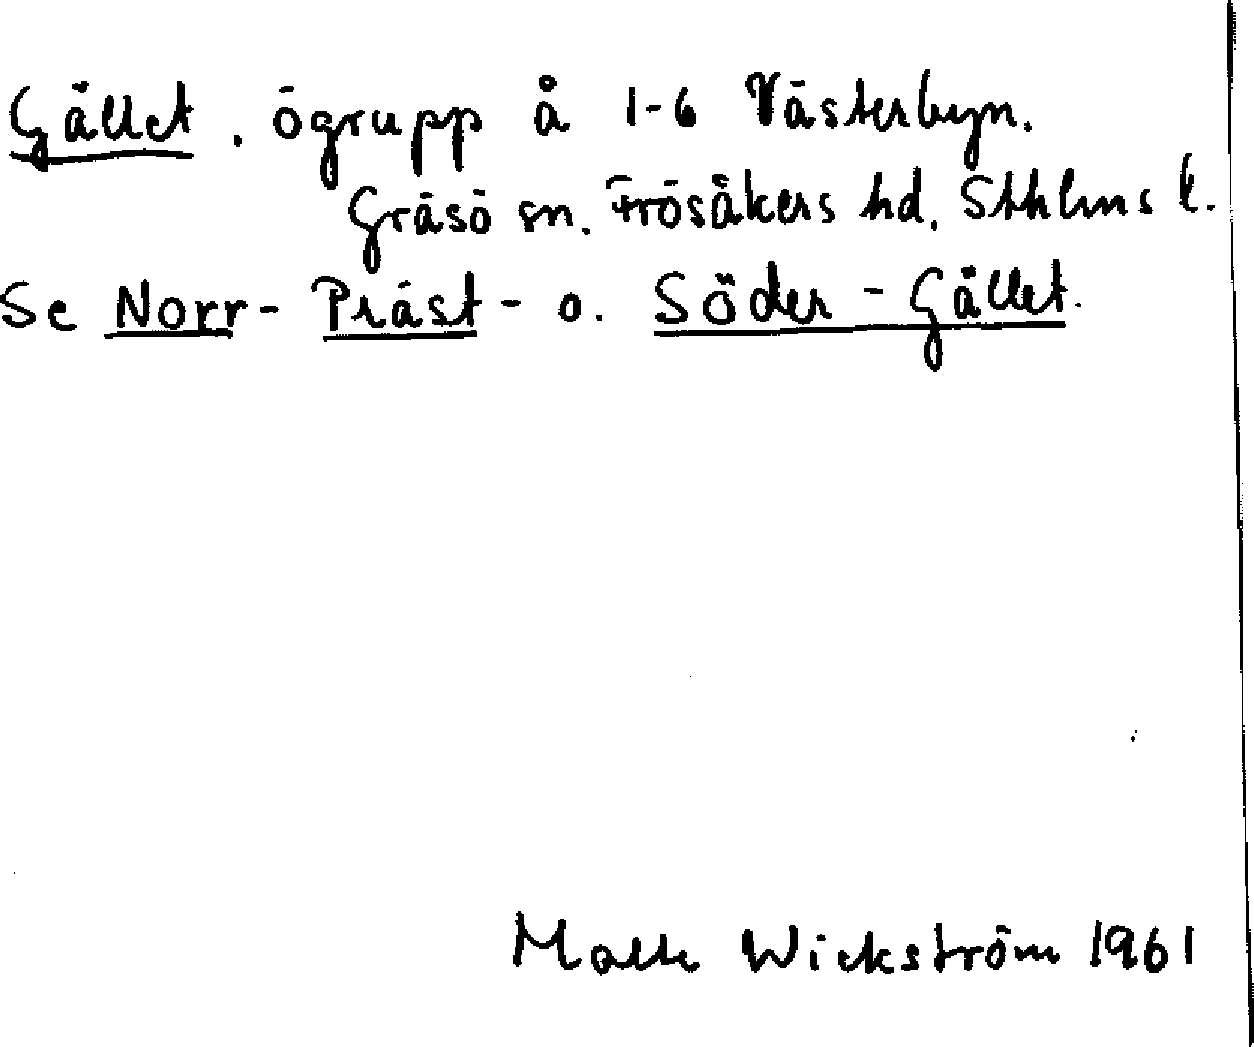 Gället. ögrupp å 1-6 Västerbyn.
Gräsö sn. Frösåkers hd. Sthlms l.
Se Norr- Präst- o. Söder-Gället.
Malte Wickström 1961